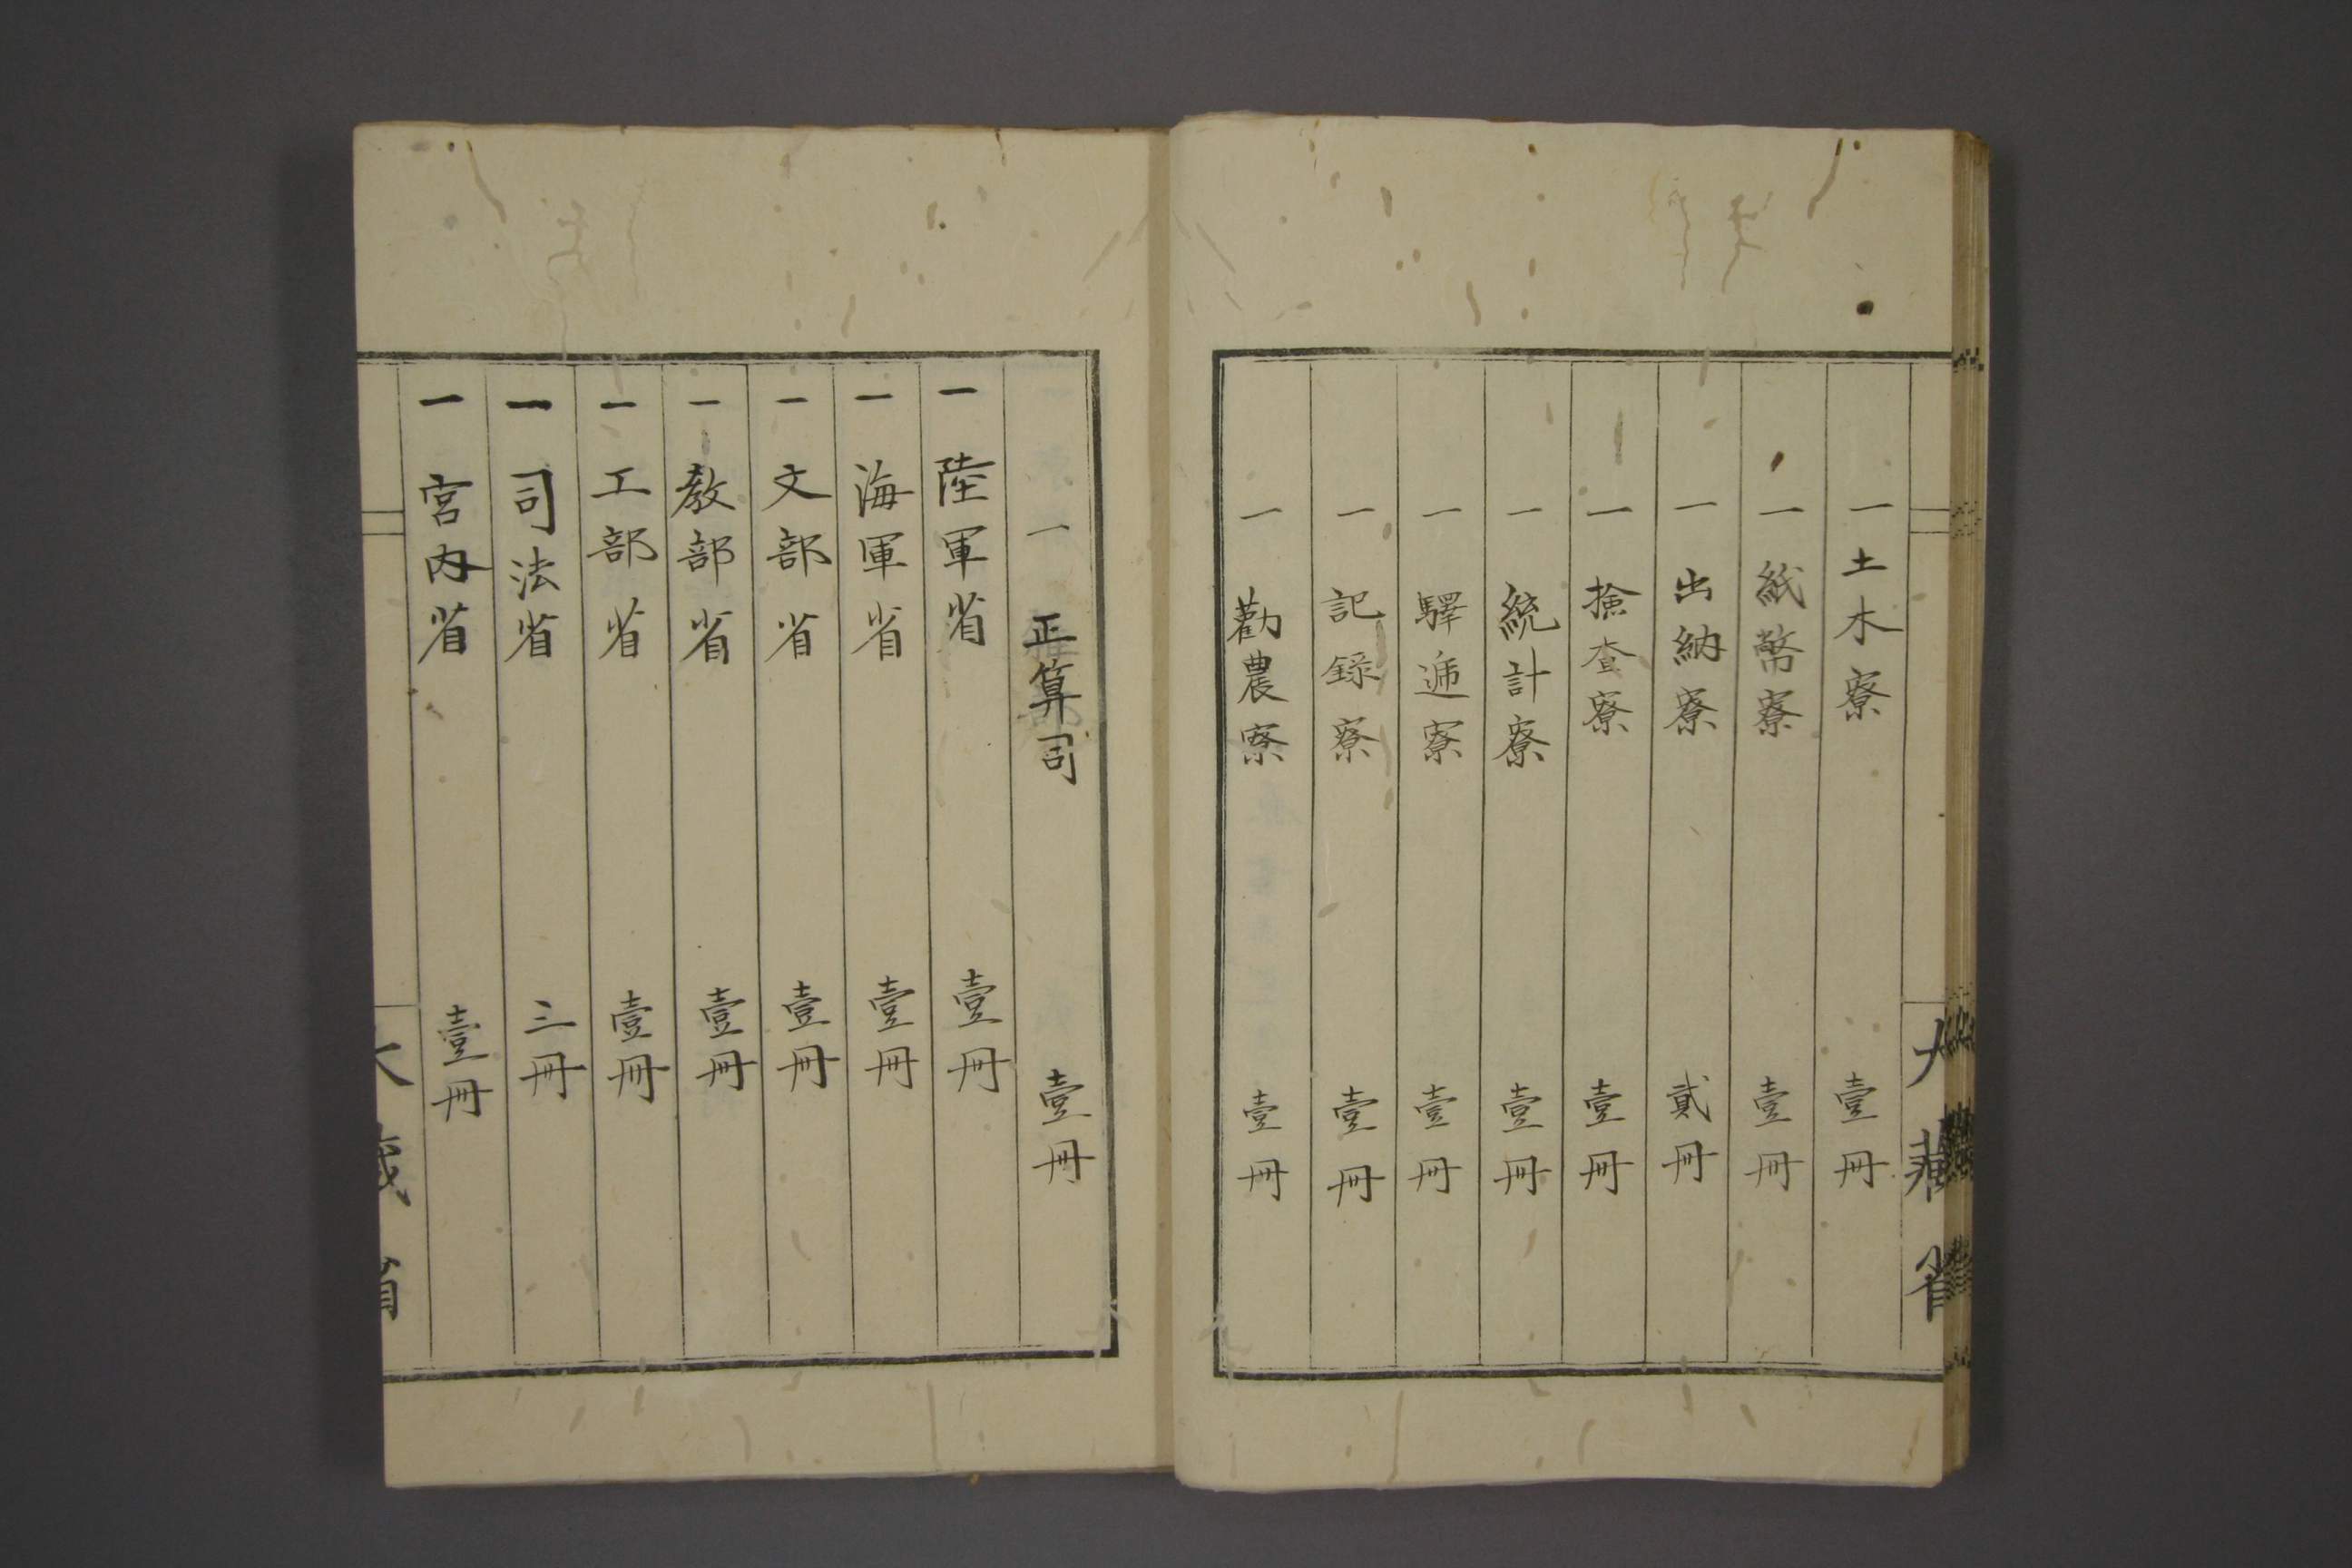 大藏省
一 土木寮 壹冊
一 紙幣寮 壹冊
一 出納寮 貳冊
一 検査寮 壹冊
一 統計寮 壹冊
一 驛逓寮 壹冊
一 記録寮 壹冊
一 勸農寮 壹冊
一 正算司 壹冊
一 陸軍省 壹冊
一 海軍省 壹冊
一 文部省 壹冊
一 教部省 壹冊
一 工部省 壹冊
一 司法省 三冊
一 宮内省 壹冊
大藏省